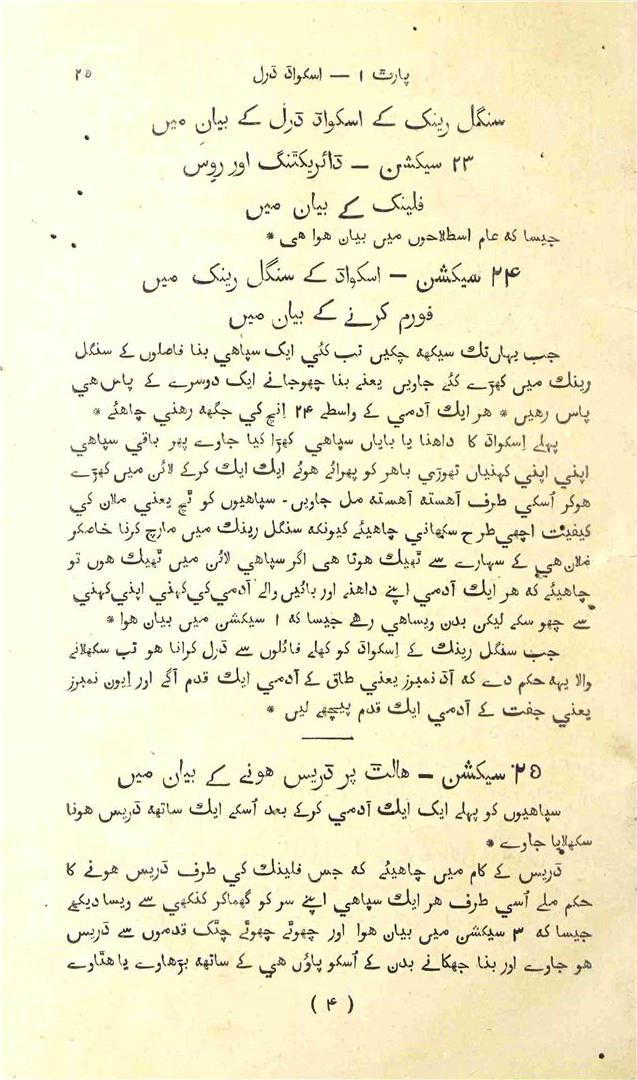 پارٹ ۱ — اسکواڈ ڈرل ۲۵
سنگل رینک کے اسکواڈ ڈرل کے بیان میں
۲۳ سیکشن — ڈائریکٹنگ اور روِس
فلینک کے بیان میں
جیسا کہ عام اسطلاحوں میں بیان ہوا ہی *
۲۴ سیکشن — اسکواڈ کے سنگل رینک میں
فورم کرنے کے بیان میں
جب یہاں تک سیکھہ چکیں تب کئي ایک سپاهي بنا فاصلوں کے سنگل
رینک میں کھڑے کئے جاویں یعنے بنا چھوجانے ایک دوسرے کے پاس هي
پاس رهیں * هر ایک آدمي کے واسطے ۲۴ اِنچ کي جگهه رهني چاهئے *
پہلے اِسکواڈ کا داهنا یا بایاں سپاهي کھڑا کیا جاوے پھر باقي سپاهي
اپني اپني کہنیاں تھوڑي باهر کو پھرائے هوئے ایک ایک کرکے لائن میں کھڑے
هوکر اُسکي طرف آهسته آهسته مل جاویں - سپاهیوں کو ٹچ یعني ملان کي
کیفیت اچھي طرح سکھاني چاهیئے کیونکه سنگل رینک میں مارچ کرنا خاصکر
ملان هي کے سہارے سے ٹھیک هوتا هی اگر سپاهي لائن میں ٹھیک هوں تو
چاهیئے که هر ایک آدمي اپنے داهنے اور بائیں والے آدمي کي کہني اپني کہني
سے چھو سکے لیکن بدن ویساهي رهے جیسا که ۱ سیکشن میں بیان هوا *
جب سنگل رینک کے اِسکواڈ کو کھلے فائلوں سے ڈرل کرانا هو تب سکھلانے
والا یہه حکم دے که آڈ نمبرز یعني طاق کے آدمي ایک قدم آگے اور اِیون نمبرز
یعني جفت کے آدمي ایک قدم پیچھے لیں *
۲۵ سیکشن — هالٹ پر ڈریس هونے کے بیان میں
سپاهیوں کو پہلے ایک ایک آدمي کرکے بعد اُسکے ایک ساتھه ڈریس هونا
سکھلایا جاوے *
ڈریس کے کام میں چاهیئے که جس فلینک کي طرف ڈریس هونے کا
حکم ملے اُسي طرف هر ایک سپاهي اپنے سر کو گھماکر کنکھي سے ویسا دیکھے
جیسا که ۳ سیکشن میں بیان هوا اور چھوٹے چھوٹے چٹک قدموں سے ڈریس
هو جاوے اور بنا جھکانے بدن کے اُسکو پاؤں هي کے ساتھه بڑهاوے یا هٹاوے
( ۴ )